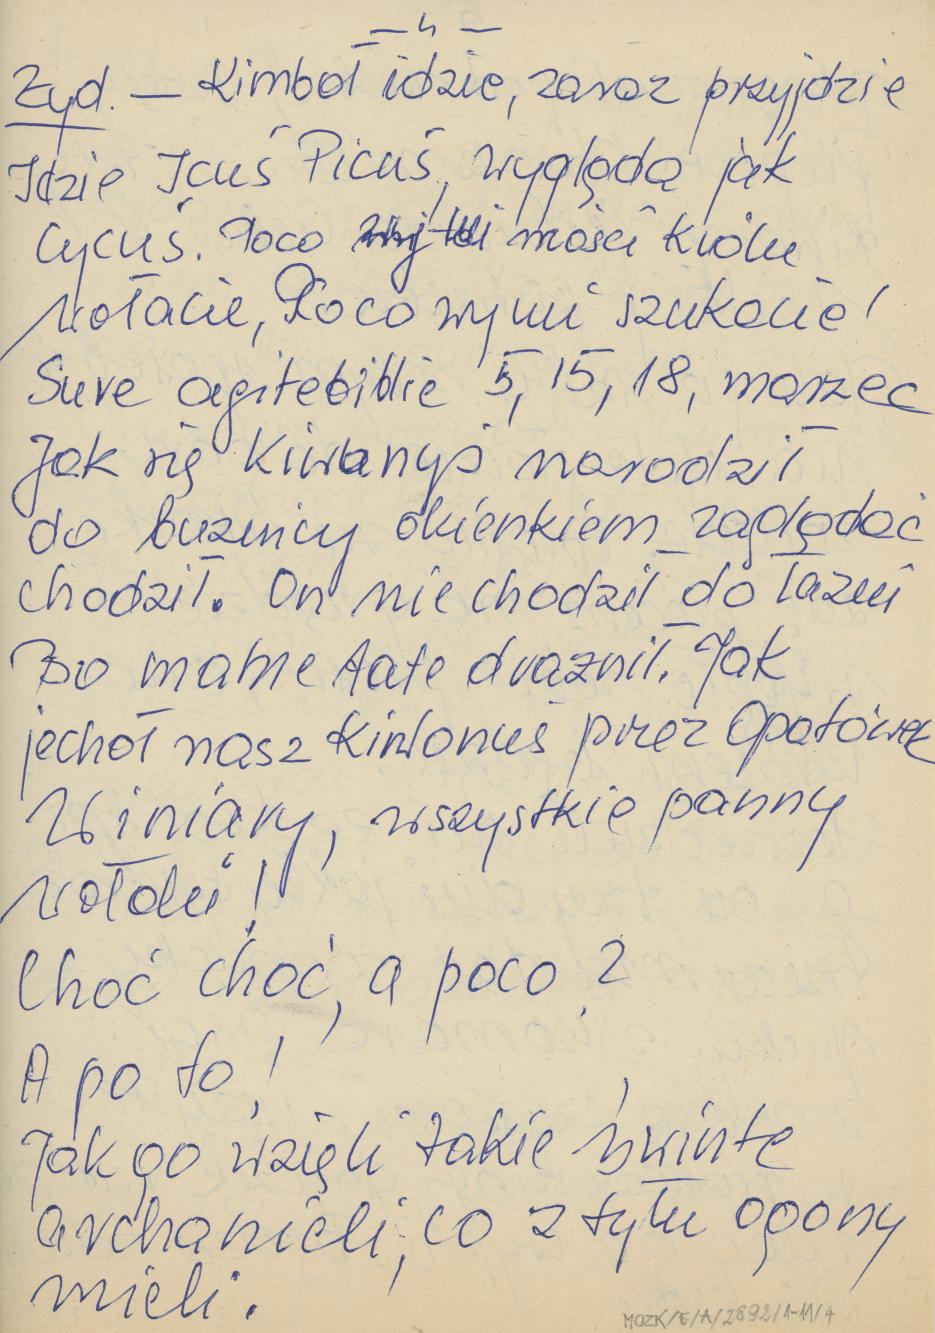 — 4 —
Żyd. — Kimboł idzie, zaraz przyjdzie
Idzie Icuś Picuś, wygląda jak
cycuś. Poco mości królu
wołacie, Poco wy mi szukacie!
Sure agitebidie 5, 15, 18, marzec
Jak się Kiwanyś narodził
do buznicy okienkiem zaglądać
chodził. On nie chodził do łazni
Bo mame tate draznił. Jak
jechoł nasz Kiwonuś przez Opatówek
Winiary, wszystkie panny
wołali!
Choć choć, a poco?
A po to!
Jak go wzięli takie świnte
archanieli, co z tyłu ogony
mieli.
MOZK/E/A/2892/1-11/4